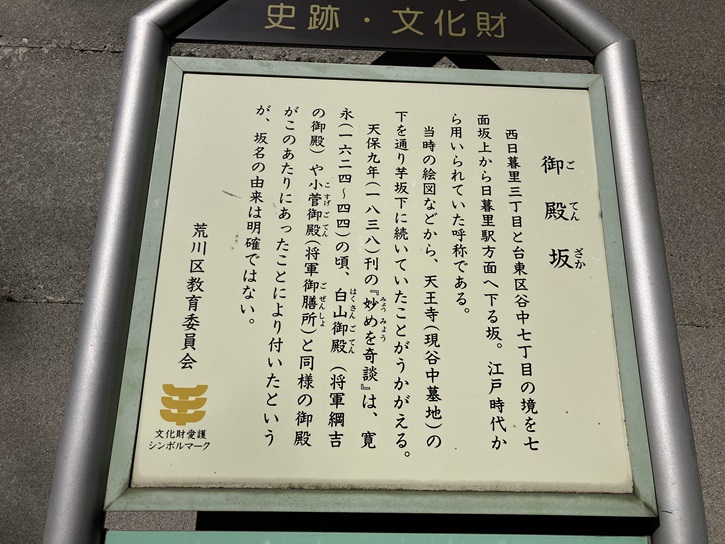 史跡・文化財
御殿坂
ごてんざか
西日暮里三丁目と台東区谷中七丁目の境を七
面坂上から日暮里駅方面へ下る坂。江戸時代か
ら用いられていた呼称である。
当時の絵図などから、天王寺(現谷中墓地)の
下を通り芋坂下に続いていたことがうかがえる。
天保九年(一八三八)刊の『妙めを奇談』は、寛
みょうみょう
永(一六二四~四四)の頃、白山御殿(将軍綱吉
はくさんごてん
の御殿)や小菅御殿(将軍御膳所)と同様の御殿
こすげごてん
ごぜんしょ
がこのあたりにあったことにより付いたという
が、坂名の由来は明確ではない。
荒川区教育委員会
文化財愛護
シンボルマーク